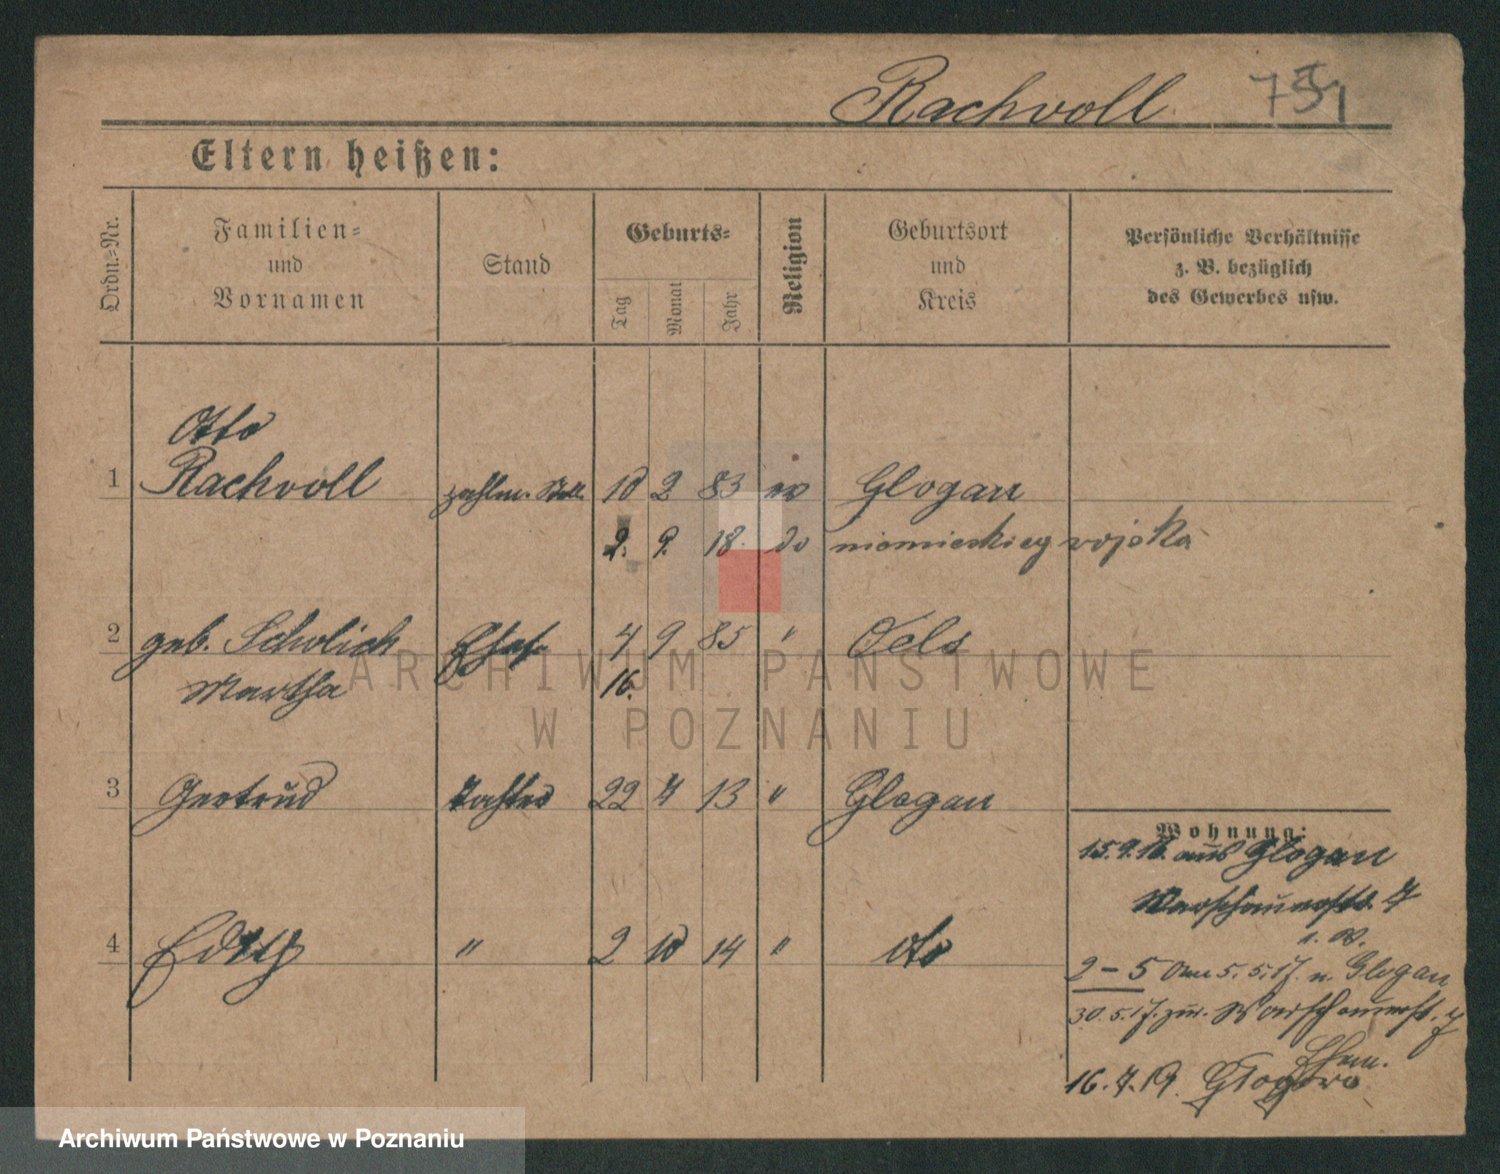 Rachvoll 751
Eltern heißen:
Ordn.-Nr.
Familien=
und
Vornamen
Stand
Geburts=
Tag
Monat
Jahr
Religion
Geburtsort
und
Kreis
Persönliche Verhältnisse
z. B. bezüglich
des Gewerbes usw.
Otto
1 Rachvoll zahlm. 10 2 83 ev Glogau
2. 9. 18. do niemieckieg wojska
2 geb. Scholich Ehef. 4 9 85 " Oels
Martha 16.
3 Gertrud Tochter 22 4 13 " Glogau
Wohnung:
15.9.16. aus Glogau
Warschauerstr. 4
4 Edith " 2 10 14 " dto
2-5 am 5.5.17. n. Glogau
30.5.17. zur. Warschauerst. 4
Ehem.
16.7.19. Glogowo
ARCHIWUM PAŃSTWOWE
W POZNANIU
Archiwum Państwowe w Poznaniu